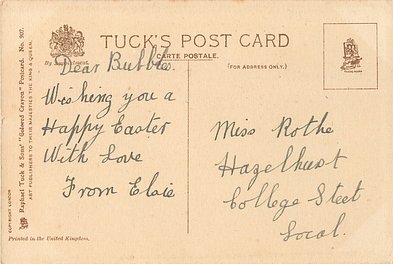 TUCK'S POST CARD
CARTE POSTALE.
(FOR ADDRESS ONLY.)
Dear Bubbles.
Wishing you a
Happy Easter
With Love
From Elsie
Miss Rothe
Hazelhurst
College Steet
Local.
Raphael Tuck & Sons' "Colored Crayon" Postcard. No. 907.
ART PUBLISHERS TO THEIR MAJESTIES THE KING & QUEEN.
COPYRIGHT LONDON
Printed in the United Kingdom.
TRADE MARK